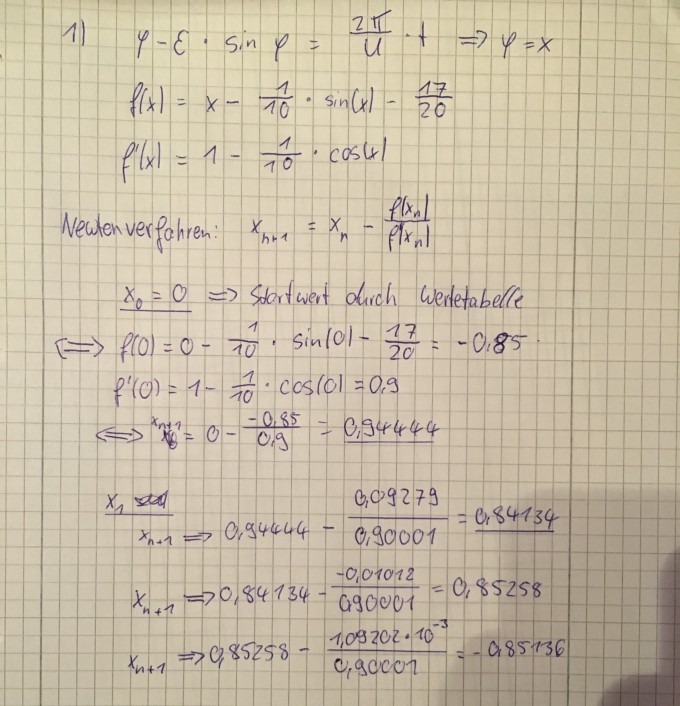 1) φ - ε · sin φ = 2π/U · t ⇒ φ = x
f(x) = x - 1/10 · sin(x) - 17/20
f'(x) = 1 - 1/10 · cos(x)
Newtonverfahren: x_{n+1} = x_n - f(x_n)/f'(x_n)
x_0 = 0 ⇒ Startwert durch Wertetabelle
⇔ f(0) = 0 - 1/10 · sin(0) - 17/20 = -0,85
f'(0) = 1 - 1/10 · cos(0) = 0,9
⇔ x_{n+1} = 0 - -0,85/0,9 = 0,94444
x_1
x_{n+1} ⇒ 0,94444 - 0,09279/0,90001 = 0,84134
x_{n+1} ⇒ 0,84134 - -0,01012/0,90001 = 0,85258
x_{n+1} ⇒ 0,85258 - 1,09202·10^{-3}/0,90001 = -0,85136